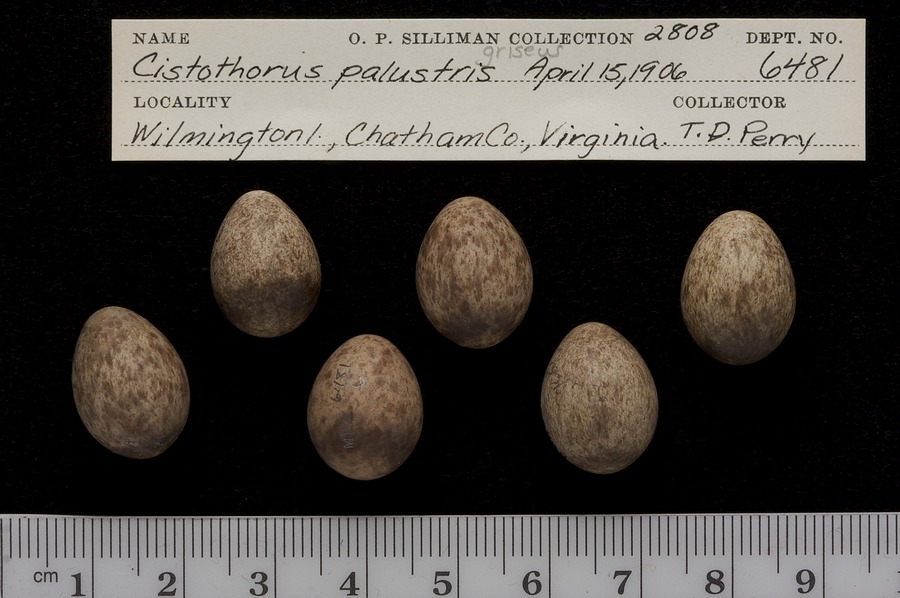 NAME O. P. SILLIMAN COLLECTION 2808 DEPT. NO.
griseus
Cistothorus palustris April 15, 1906 6481
LOCALITY COLLECTOR
Wilmington I., Chatham Co., Virginia. T. D. Perry
6481
cm 1 2 3 4 5 6 7 8 9